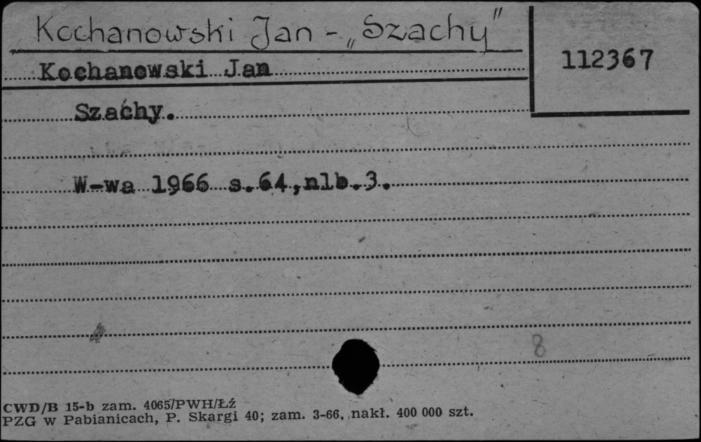 Kochanowski Jan - „Szachy"
112367
Kochanowski Jan
Szachy.
W-wa 1966 s.64,nlb.3.
8
CWD/B 15-b zam. 4065/PWH/Łź
PZG w Pabianicach, P. Skargi 40; zam. 3-66, nakł. 400 000 szt.